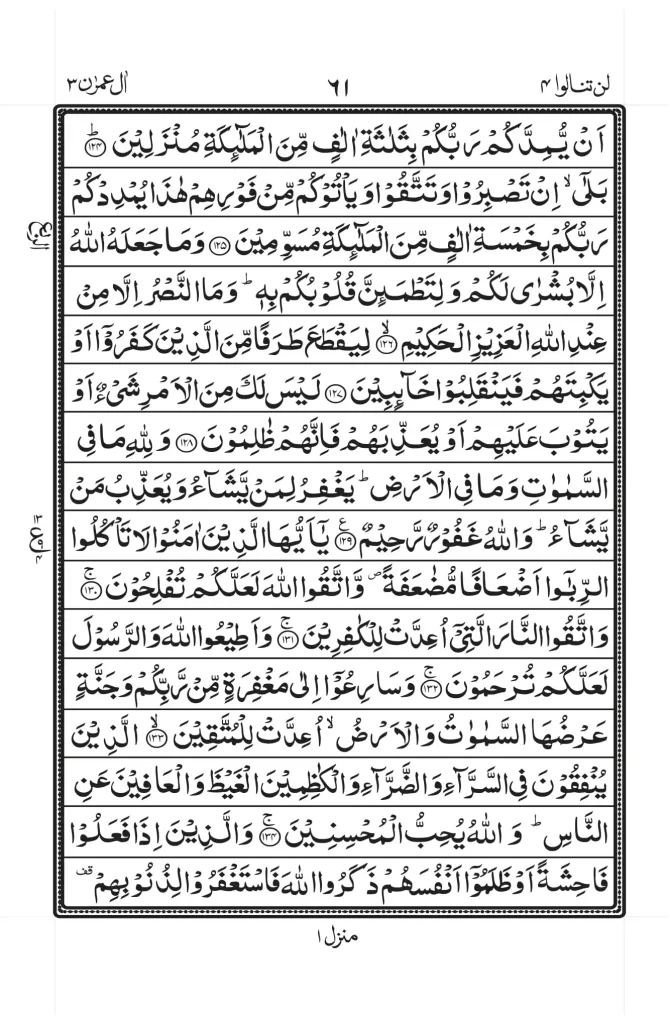 لن تنالوا ۴ ٦١ اٰل عمرٰن ۳
اَنۡ يُّمِدَّكُمۡ رَبُّكُمۡ بِثَلٰثَةِ اٰلٰفٍ مِّنَ الۡمَلٰٓٮِٕكَةِ مُنۡزَلِيۡنَ ؕ‏﴿۱۲۴﴾
بَلٰٓى ۙ اِنۡ تَصۡبِرُوۡا وَتَتَّقُوۡا وَيَاۡتُوۡكُمۡ مِّنۡ فَوۡرِهِمۡ هٰذَا يُمۡدِدۡكُمۡ
رَبُّكُمۡ بِخَمۡسَةِ اٰلٰفٍ مِّنَ الۡمَلٰٓٮِٕكَةِ مُسَوِّمِيۡنَ ﴿۱۲۵﴾ وَمَا جَعَلَهُ اللّٰهُ
اِلَّا بُشۡرٰى لَكُمۡ وَلِتَطۡمَٮِٕنَّ قُلُوۡبُكُمۡ بِهٖ ؕ وَمَا النَّصۡرُ اِلَّا مِنۡ
عِنۡدِ اللّٰهِ الۡعَزِيۡزِ الۡحَكِيۡمِ ۙ﴿۱۲۶﴾ لِيَقۡطَعَ طَرَفًا مِّنَ الَّذِيۡنَ كَفَرُوۡۤا اَوۡ
يَكۡبِتَهُمۡ فَيَنۡقَلِبُوۡا خَآٮِٕبِيۡنَ ﴿۱۲۷﴾ لَيۡسَ لَكَ مِنَ الۡاَمۡرِ شَىۡءٌ اَوۡ
يَتُوۡبَ عَلَيۡهِمۡ اَوۡ يُعَذِّبَهُمۡ فَاِنَّهُمۡ ظٰلِمُوۡنَ ﴿۱۲۸﴾ وَلِلّٰهِ مَا فِى
السَّمٰوٰتِ وَمَا فِى الۡاَرۡضِ ؕ يَغۡفِرُ لِمَنۡ يَّشَآءُ وَيُعَذِّبُ مَنۡ
يَّشَآءُ ؕ وَاللّٰهُ غَفُوۡرٌ رَّحِيۡمٌ ﴿۱۲۹﴾ يٰۤاَيُّهَا الَّذِيۡنَ اٰمَنُوۡا لَا تَاۡكُلُوا
الرِّبٰٓوا اَضۡعَافًا مُّضٰعَفَةً ص وَّاتَّقُوا اللّٰهَ لَعَلَّكُمۡ تُفۡلِحُوۡنَ ۚ﴿۱۳۰﴾
وَاتَّقُوا النَّارَ الَّتِىۡۤ اُعِدَّتۡ لِلۡكٰفِرِيۡنَ ۚ﴿۱۳۱﴾ وَاَطِيۡعُوا اللّٰهَ وَالرَّسُوۡلَ
لَعَلَّكُمۡ تُرۡحَمُوۡنَ ۚ﴿۱۳۲﴾ وَسَارِعُوۡۤا اِلٰى مَغۡفِرَةٍ مِّنۡ رَّبِّكُمۡ وَجَنَّةٍ
عَرۡضُهَا السَّمٰوٰتُ وَالۡاَرۡضُ ۙ اُعِدَّتۡ لِلۡمُتَّقِيۡنَ ۙ﴿۱۳۳﴾ الَّذِيۡنَ
يُنۡفِقُوۡنَ فِى السَّرَّآءِ وَالضَّرَّآءِ وَالۡكٰظِمِيۡنَ الۡغَيۡظَ وَالۡعَافِيۡنَ عَنِ
النَّاسِ ؕ وَاللّٰهُ يُحِبُّ الۡمُحۡسِنِيۡنَ ۚ﴿۱۳۴﴾ وَالَّذِيۡنَ اِذَا فَعَلُوۡا
فَاحِشَةً اَوۡ ظَلَمُوۡۤا اَنۡفُسَهُمۡ ذَكَرُوا اللّٰهَ فَاسۡتَغۡفَرُوۡا لِذُنُوۡبِهِمۡ قف
منزل ۱